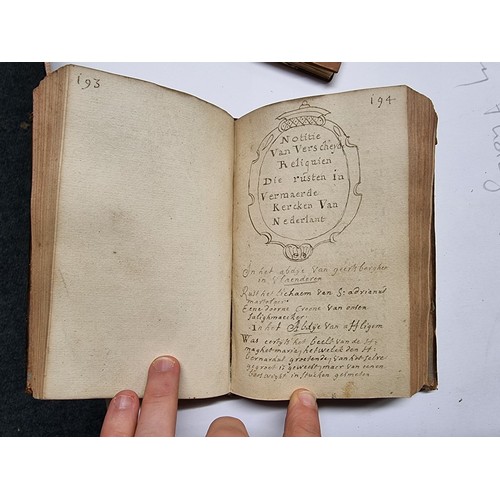 193
194
Notitie
Van Verscheyd
Reliquien
Die rusten in
Vermaerde
Kercken Van
Nederlant
In het abdye van geersbergen
in Vlaenderen
Rust het lichaem van St adrianus
martelaer
Eene doorne Croone van onsen
salighmaecker
In het Abdye van affligem
Was eertyts het beelt van de H:
maghet marie, het welck den H:
bernardus groetende, van het selve
gegroet is geweest, maer van eenen
in stucken geslaeghen